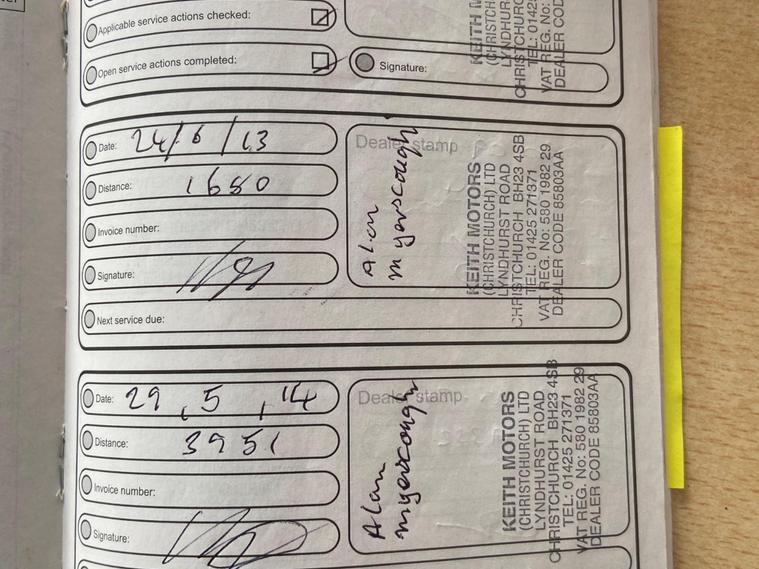 Applicable service actions checked:
Open service actions completed:
Signature:
KEITH MOTORS
(CHRISTCHURCH) LTD
LYNDHURST ROAD
CHRISTCHURCH
TEL: 01425
VAT REG. No:
DEALER COD
Date: 24/6/13
Distance: 1650
Invoice number:
Signature:
Next service due:
Dealer stamp
Alan
myerscough
KEITH MOTORS
(CHRISTCHURCH) LTD
LYNDHURST ROAD
CHRISTCHURCH BH23 4SB
TEL: 01425 271371
VAT REG. No: 580 1982 29
DEALER CODE 85803AA
Date: 29,5,14
Distance: 3951
Invoice number:
Signature:
Dealer stamp
Alan
myerscough
KEITH MOTORS
(CHRISTCHURCH) LTD
LYNDHURST ROAD
CHRISTCHURCH BH23 4SB
TEL: 01425 271371
VAT REG. No: 580 1982 29
DEALER CODE 85803AA